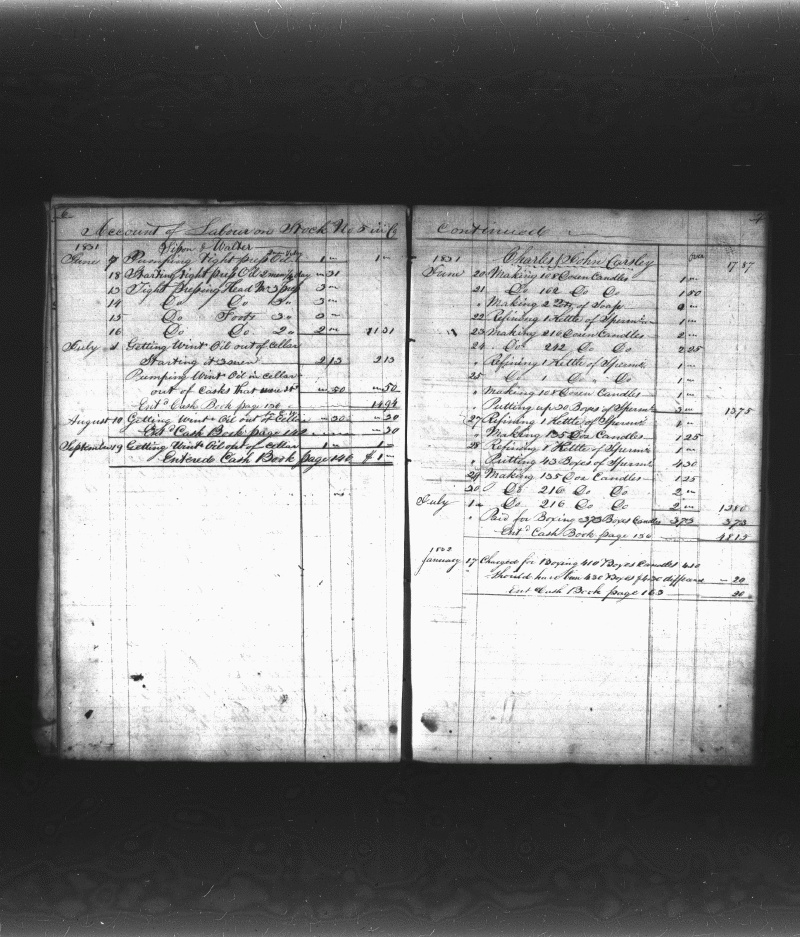 6
Account of Labour on Stock No 5
1831
June 9 Pumping Tight press Oil 1 " 1 "
18 Starting tight press Oil 2 men ½ day " 31
13 Tight Pressing Head 3 " 
14 Do Do 3 "
15 Do Foots 3 "
16 Do Do 2 " 11 31
July Getting Wint Oil out of cellar
Starting it 3 men 2 13 2 13
Pumping Wint Oil in cellar
out of Casks that " 50 " 50
Entd Cash Book page 136 14 94
August 10 Getting Wint Oil out of Cellar " 30 " 30
Entd Cash Book page " 30
September 9 Getting Wint Oil out of cellar 1 " 1 "
Entered Cash Book page 140 $ 1 "
Continued
17 87
1831 Charles & John Carsley
June 20 Making 108 Doxen Candles 1 "
21 Do 162 Do Do 1 50
" Making 2 of Soap
22 Refining 1 Kettle of Sperm 1 "
23 Making 216 Doxen Candles 2 "
24 Do 242 Do Do 2 25
" Refining 1 Kettle of Sperm 1 "
25 Do 1 Do " Do 1 "
" Making 108 Doxen Candles 1 "
Putting up 30 Boxes of Sperm 3 " 13 75
27 Refining 1 Kettle of Sperm 1 "
" Making 135 Dox Candles 1 25
28 Refining 1 Kettle of Sperm 1 "
" Putting 43 Boxes of Sperm 4 30
29 Making 135 Dox Candles 1 25
30 Do 216 Do Do 2 "
July 1 Do 216 Do Do 2 " 12 80
" Paid for Boxing 373 Boxes Candles 3 73 3 73
Entd Cash Book page 136 48 15
1832
January 17 Charged for Boxing 410 Boxes Candles 4 10
Should have been 430 Boxes $4.30 " 20
Ent Cash Book page 163 20